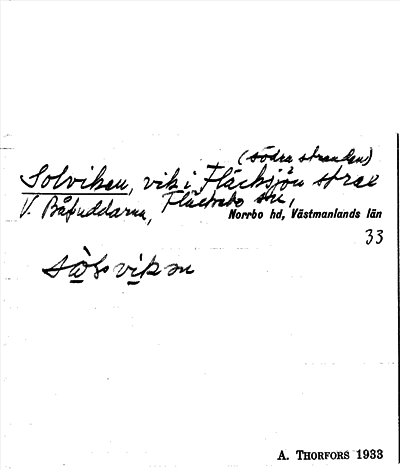 (södra stranden)
Solviken, vik i Fläcksjön strax
V. Båtuddarna, Fläckebo sn,
Norrbo hd, Västmanlands län
33
A. THORFORS 1933